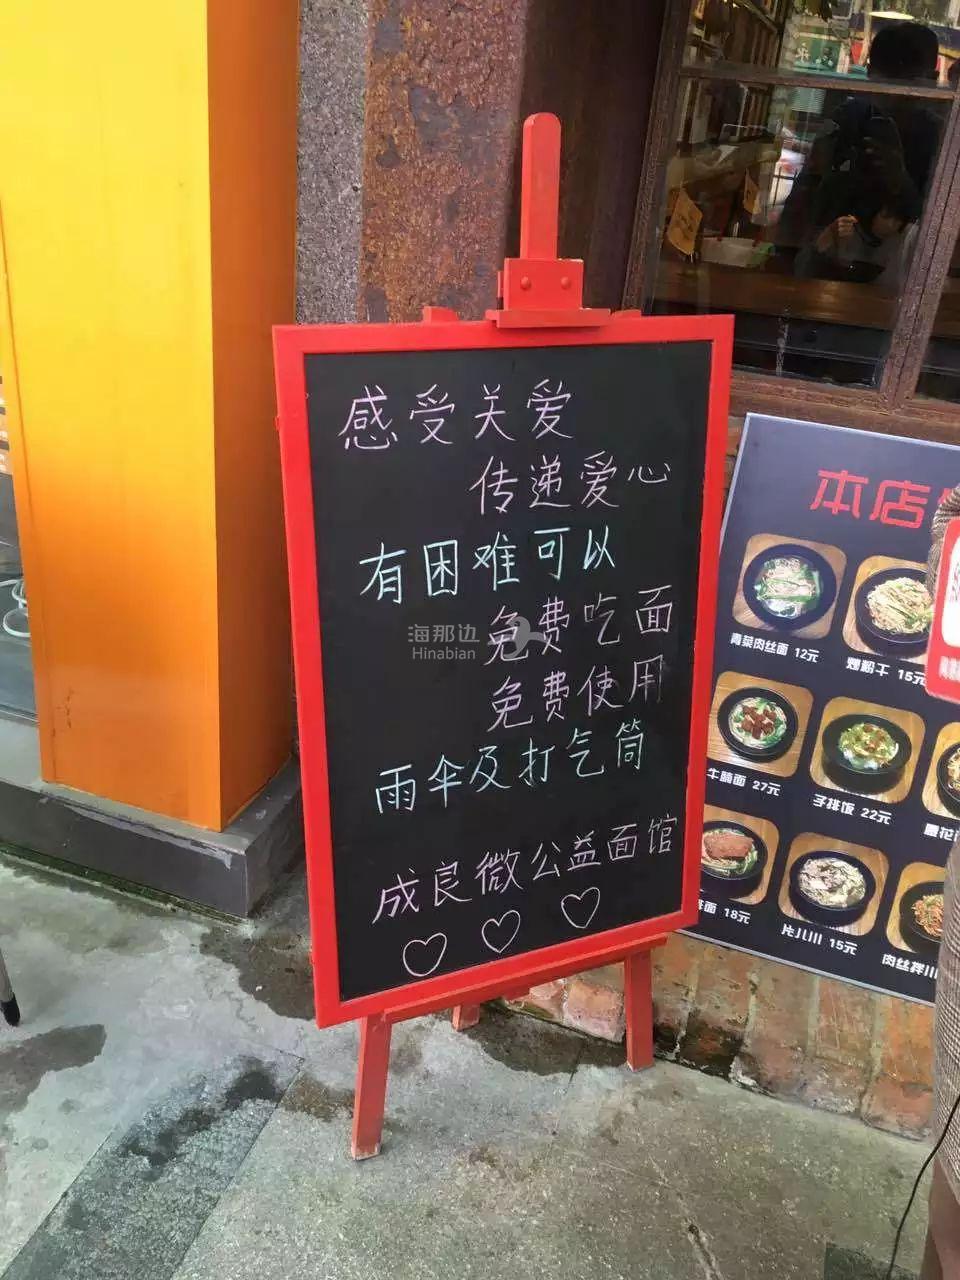 感受关爱
传递爱心
有困难可以
免费吃面
免费使用
雨伞及打气筒
成良微公益面馆
海那边
Hinabian
本店
青菜肉丝面 12元
炒粉干 15元
牛腩面 27元
子排饭 22元
排面 18元
片儿川 15元
肉丝拌川